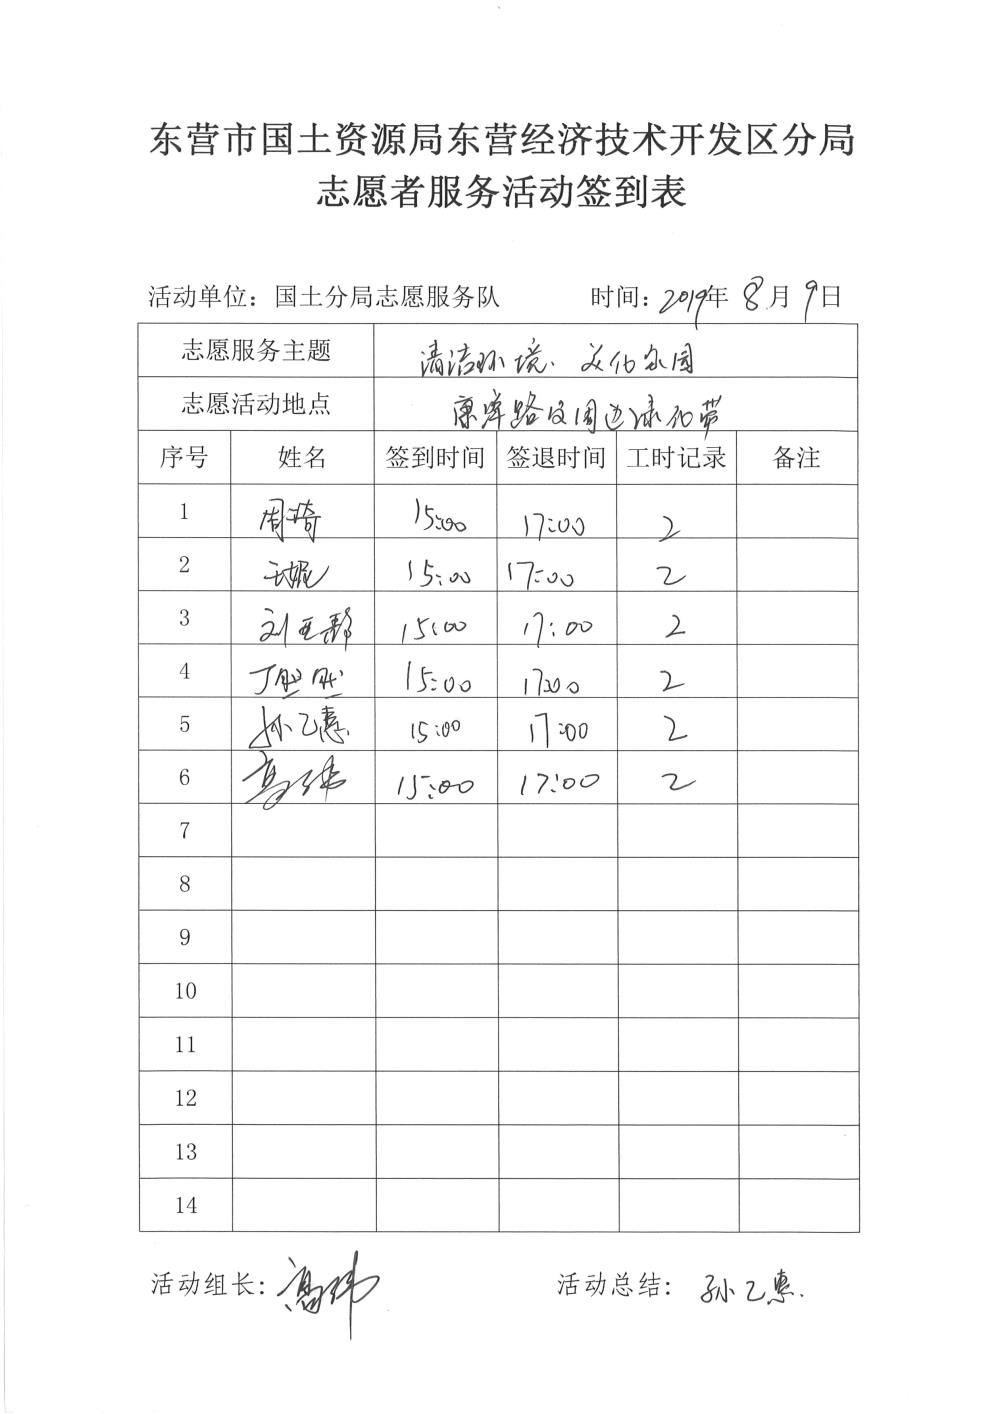 东营市国土资源局东营经济技术开发区分局
志愿者服务活动签到表
活动单位：国土分局志愿服务队 时间：2019年 8月 9日
志愿服务主题 清洁环境、美化家园
志愿活动地点 康洋路及周边绿化带
序号 姓名 签到时间 签退时间 工时记录 备注
1 周琦 15:00 17:00 2
2 王妮 15:00 17:00 2
3 刘亚静 15:00 17:00 2
4 丁 15:00 17:00 2
5 孙乙惠 15:00 17:00 2
6 高玮 15:00 17:00 2
7
8
9
10
11
12
13
14
活动组长：高玮 活动总结：孙乙惠.